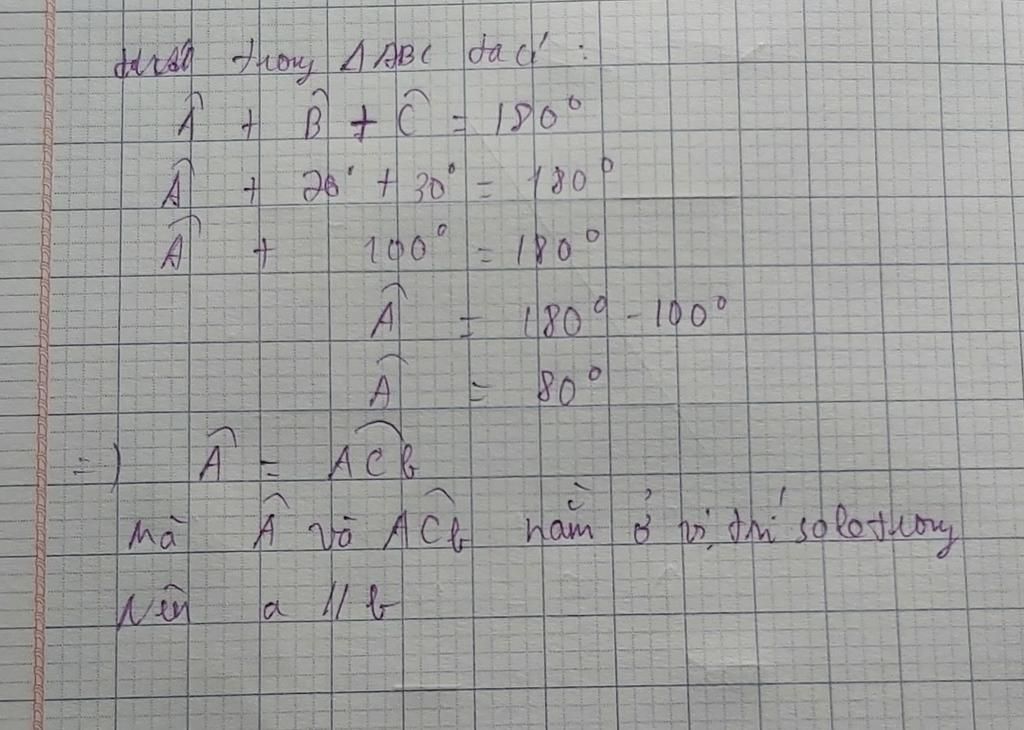 trong Δ ABC ta có :
Â + B̂ + Ĉ = 180°
Â + 20° + 30° = 180°
Â + 100° = 180°
Â = 180° - 100°
Â = 80°
=) Â = ACb
Mà Â và ACb nằm ở vị trí so le trong
Nên a // b